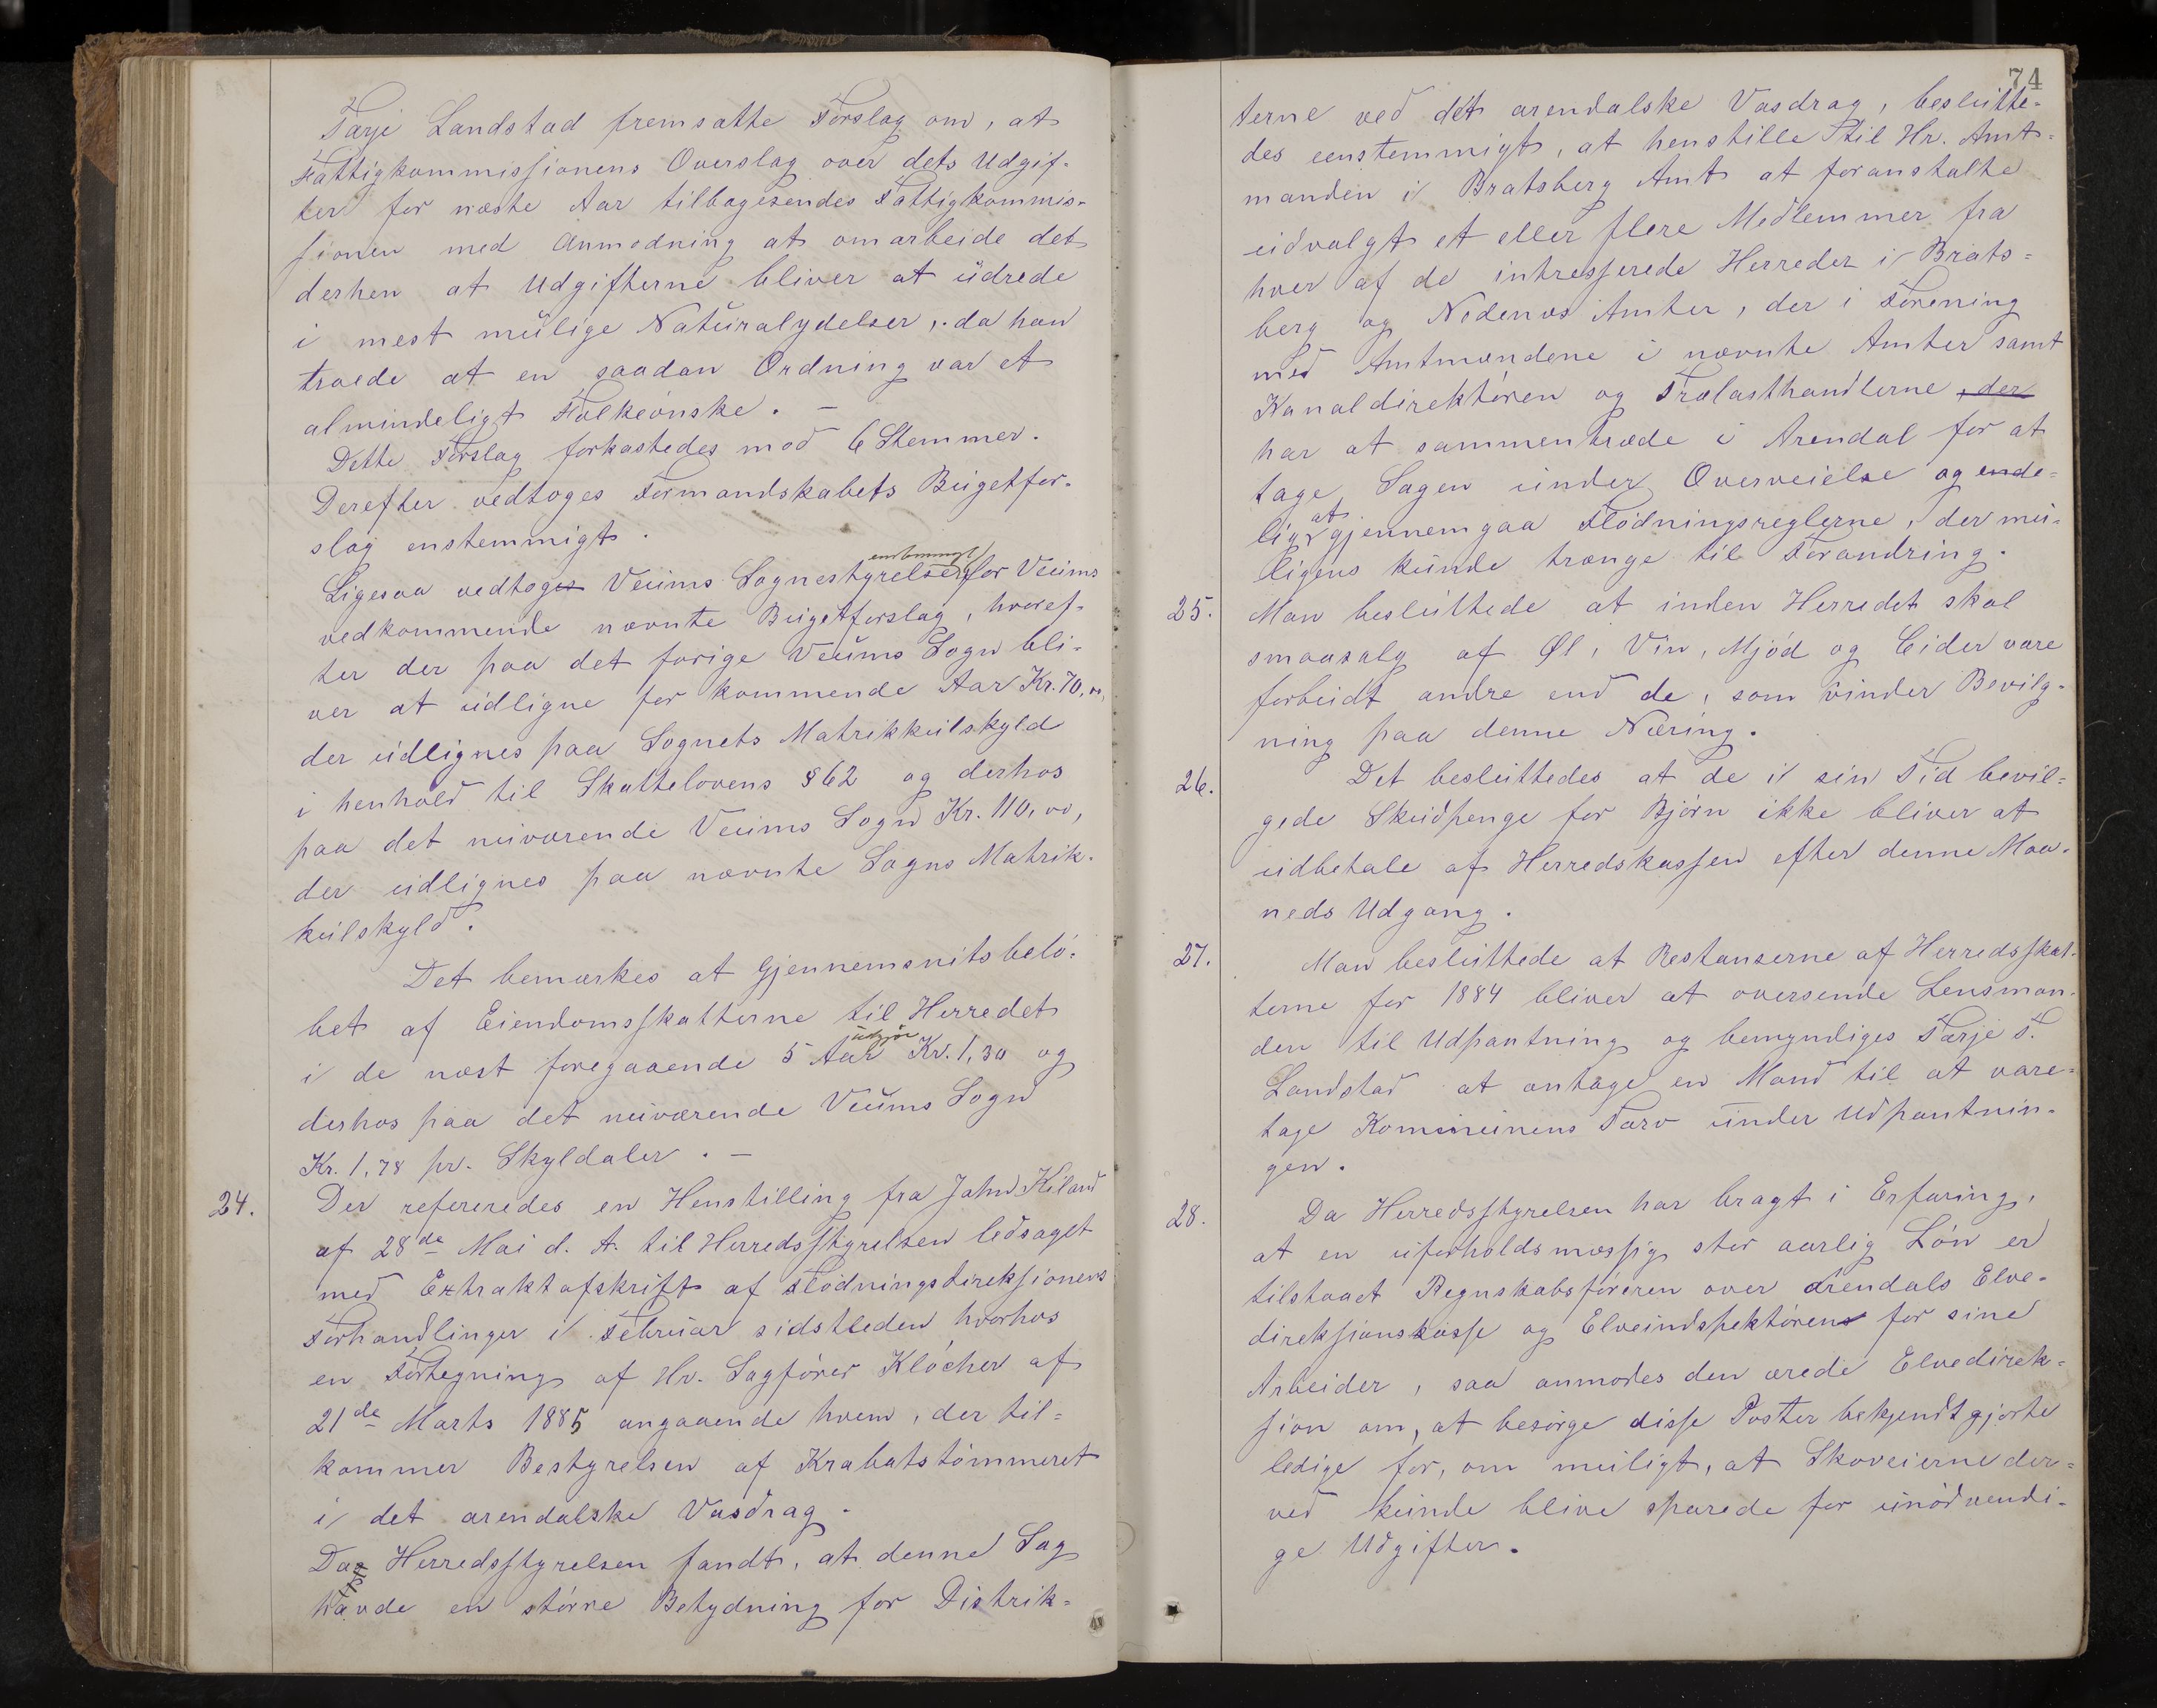 Tarje Landstad fremsatte Forslag om, at
Fattigkommissionens Overslag over dets Udgif-
ter for næste Aar tilbagesendes Fattigkommis-
sionen med Anmodning at omarbeide det
derhen at Udgifterne bliver at üdrede
i mest mulige Naturalydelser, da han
troede at en saadan Ordning var et
almindeligt Folkeønske. —
Dette Forslag forkastedes mod 6 Stemmer.
Derefter vedtoges Formandskabets Bugetfor-
slag enstemmigt.
enstemmigt
Ligesaa vedtoges Veums Sognestyrelse for Veums
vedkommende nævnte Bugetforslag, hvoref-
ter der paa det forige Veums Sogn bli-
ver at udligne for kommende Aar Kr. 70,00,
der udlignes paa Sognets Matrikkulskyld
i henhold til Skattelovens § 62 og derhos
paa det nuværende Veums Sogn Kr. 110,00,
der udlignes paa nævnte Sogns Matrik-
kulskyld.
Det bemærkes at Gjennemsnitsbelø-
bet af Eiendomsskatterne til Herredet
udgjør
i de næst foregaaende 5 Aar Kr. 1,30 og
derhos paa det nuværende Veums Sogn
Kr. 1,78 pr. Skyldaler. —
24. Der refereredes en Henstilling fra Jahn Kiland
af 28de Mai d. A. til Herredsstyrelsen ledsaget
med Extraktafskrift af Flødningsdireksionens
Forhandlinger i Februar sidstleden hvorhos
en Fortegning af Hr. Sagfører Kløcker af
21de Marts 1885 angaaende hvem, der til-
kommer Bestyrelsen af Krabatstømmeret
i det arendalske Vasdrag.
Da Herredsstyrelsen fandt, at denne Sag
havde en større Betydning for Distrik-
74
terne ved det arendalske Vasdrag, beslutte-
des eenstemmigt, at henstille til Hr. Amt-
manden i Bratsberg Amt at foranstalte
udvalgt et eller flere Medlemmer fra
hver af de intresserede Herreder i Brats-
berg og Nedenæs Amter, der i Forening
med Amtmændene i nævnte Amter samt
Kanaldirektøren og Trælasthandlerne , der
har at sammentræde i Arendal for at
tage Sagen under Overveielse og ende-
at
lig gjennemgaa Flødningsreglerne, der mu-
ligens kunde trænge til Forandring.
25. Man besluttede at inden Herredet skal
smaasalg af Øl, Vin, Mjød og Cider være
forbudt andre end de, som vinder Bevilg-
ning paa denne Næring.
26. Det besluttedes at de i sin Tid bevil-
gede Skudpenge for Bjørn ikke bliver at
udbetale af Herredskassen efter denne Maa-
neds Udgang.
27. Man besluttede at Restanserne af Herredsskat-
terne for 1884 bliver at oversende Lensman-
den til Udpantning og bemyndiges Tarje T.
Landstad at antage en Mand til at vare-
tage Kommunens Tarv under Udpantnin-
gen.
28. Da Herredsstyrelsen har bragt i Erfaring,
at en uforholdsmæssig stor aarlig Løn er
tilstaaet Regnskabsføreren over Arendals Elve-
direksionskasse og Elveindspektøren for sine
Arbeider, saa anmodes den ærede Elvedirek-
sion om, at besørge disse Poster bekjendtgjorte
ledige for, om muligt, at Skoveierne der-
ved kunde blive sparede for unødvendi-
ge Udgifter.